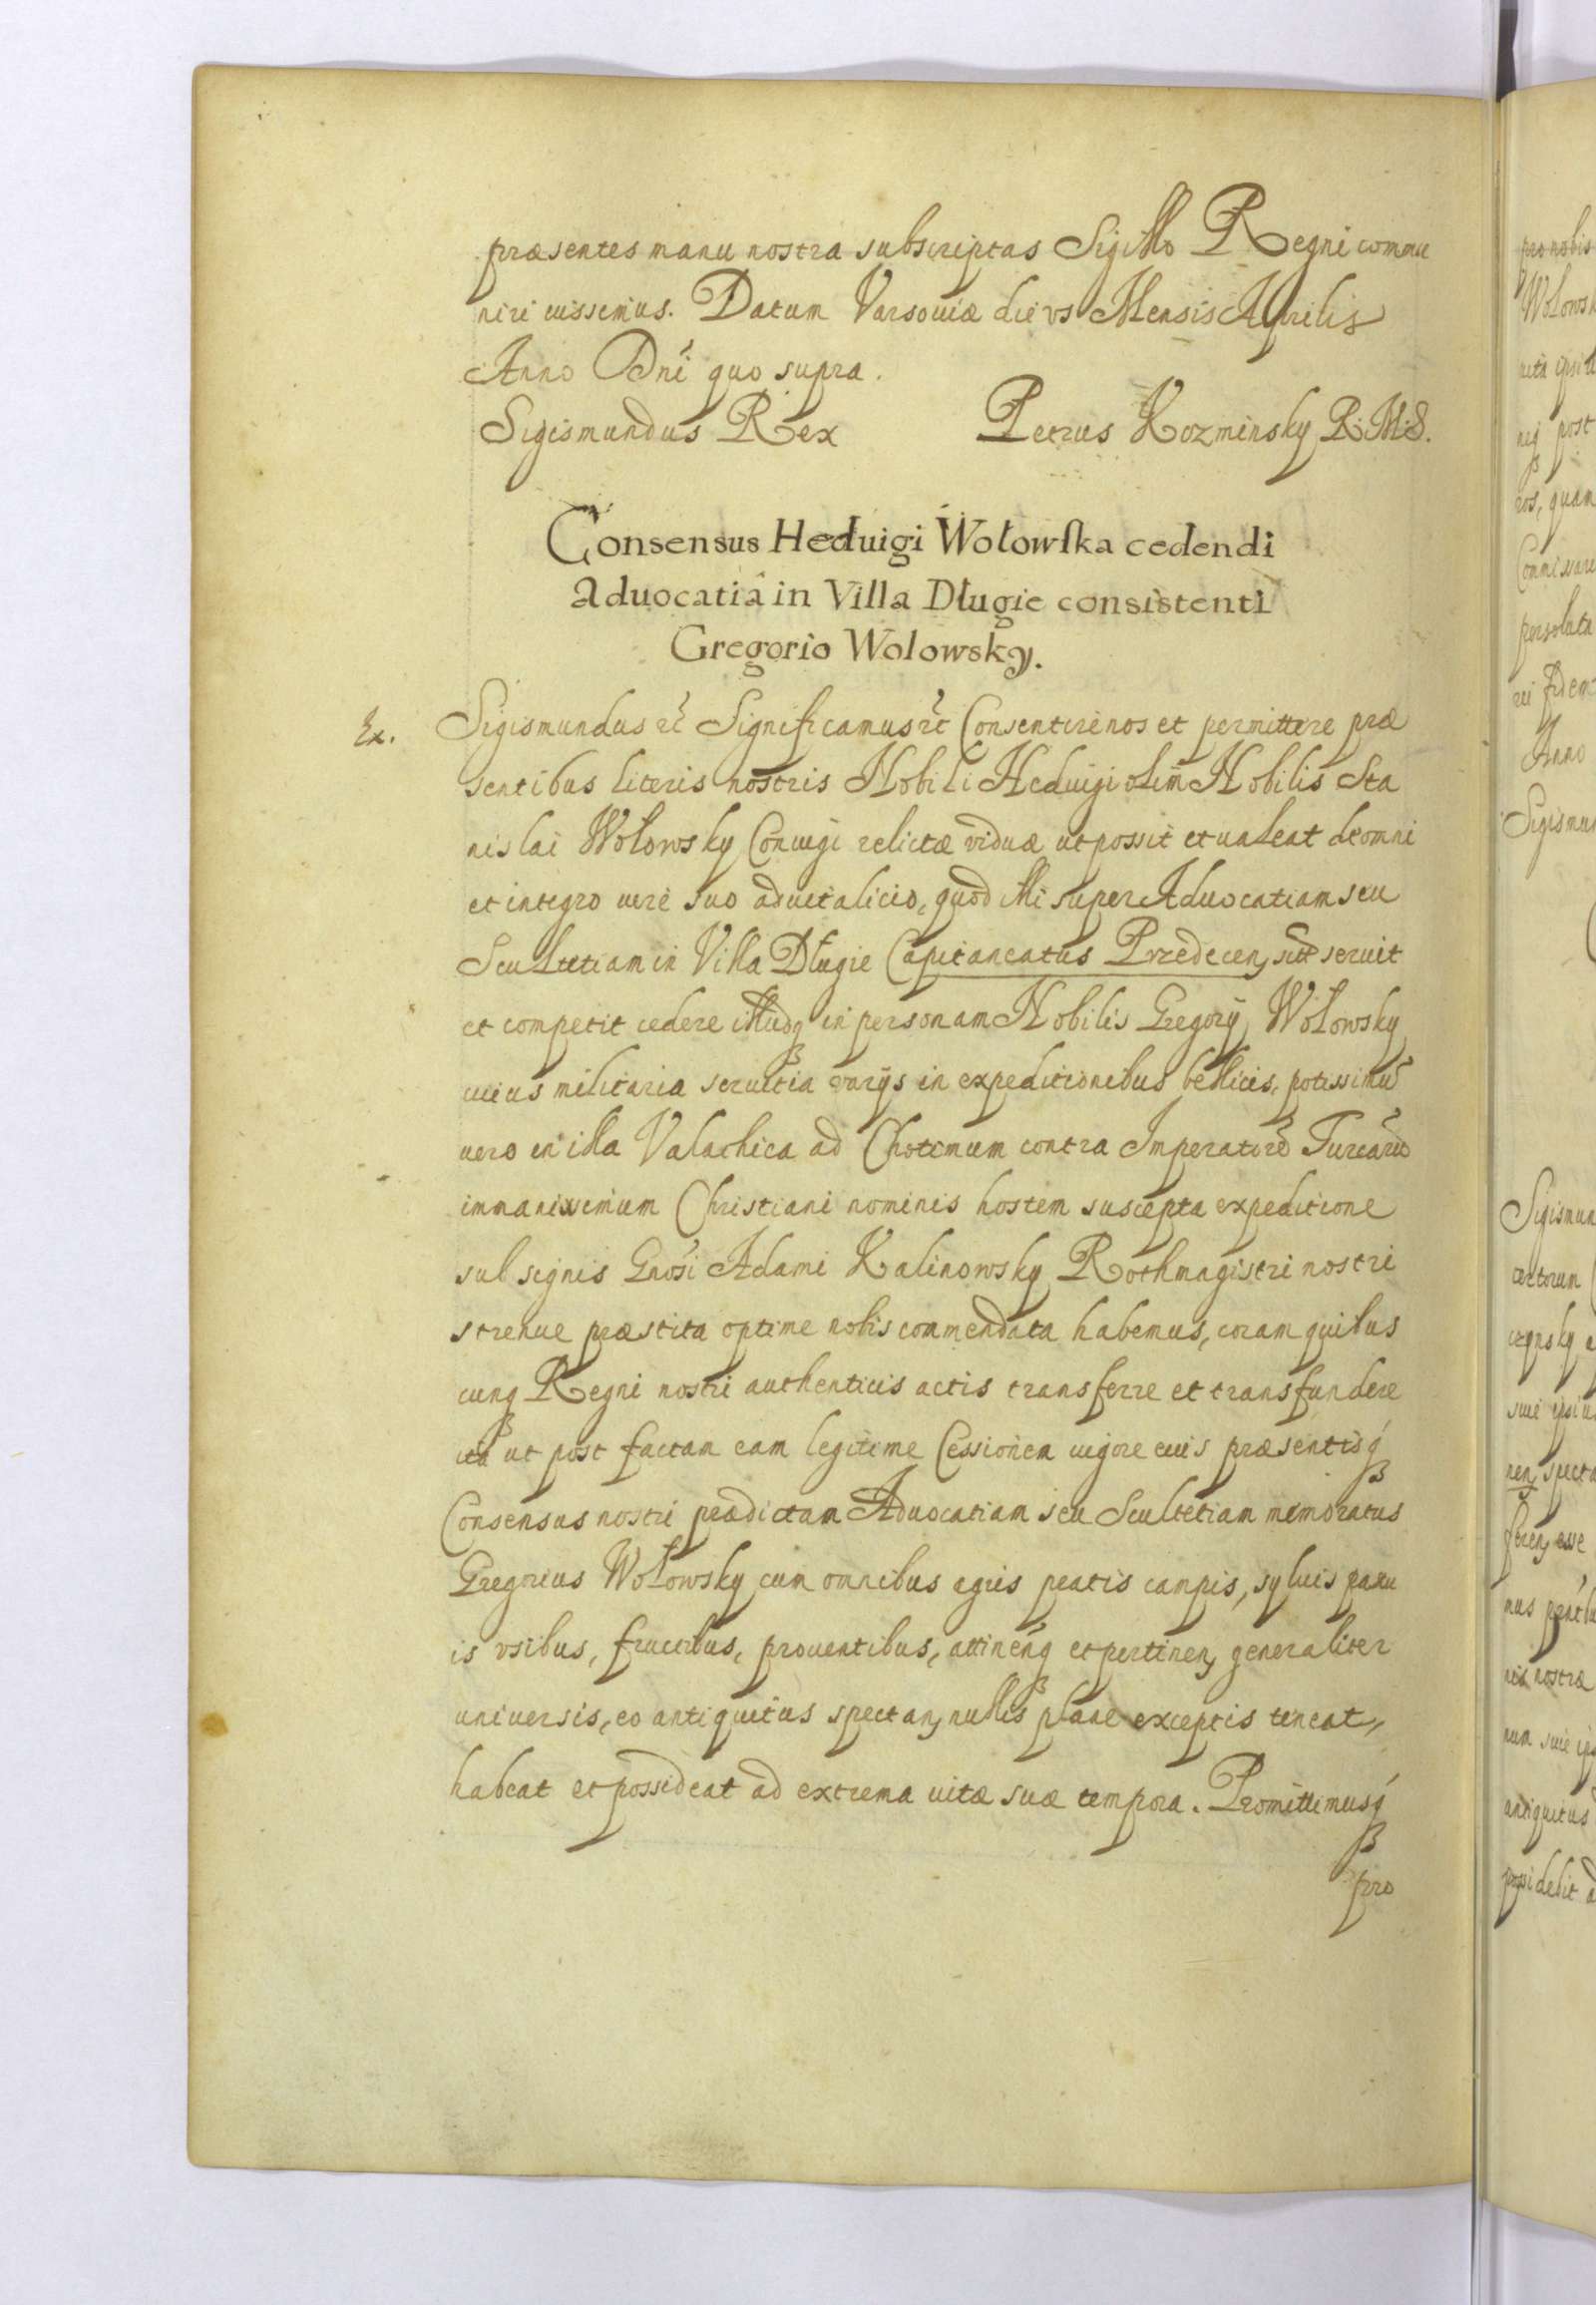 præsentes manu nostra subscriptas Sigillo Regni commu
niri iussimus. Datum Varsouiæ die vs Mensis Aprilis
Anno Dni quo supra.
Sigismundus Rex Petrus Kozminsky R. M. S.
Consensus Heduigi Wołowska cedendi
aduocatiā in Villa Długie consistenti
Gregorio Wolowsky.
Ex. Sigismundus rc Significamus rc Consentire nos et permittere præ
sentibus literis nostris Nobili Heduigi olim Nobilis Sta
nislai Wołowsky Coniugi relictæ viduæ ut possit et ualeat de omni
et integro iure suo aduitalicio, quod illi super Aduocatiam seu
Scultetiam in Villa Długie Capitaneatus Przedecen, seruit
et competit cedere illudq in personam Nobilis Gregorij Wołowsky
cuius militaria seruitia varijs in expeditionibus bellicis, potissimū
uero in illa Valachica ad Chotimum contra Imperatorē Turcarū
immanissimum Christiani nominis hostem suscepta expeditione
sub signis Gnosi Adami Kalinowsky Rothmagistri nostri
strenue præstita optime nobis commendata habemus, coram quibus
cunq Regni nostri authenticis actis transferre et transfundere
ita ut post factam eam legitime Cessionem uigore euis præsentisq
Consensus nostri prædictam Aduocatiam seu Scultetiam memoratus
Gregorius Wołowsky cum omnibus agris pratis campis, syluis
is vsibus, fructibus, prouentibus, attinenq et pertinen, generaliter
uniuersis, eo antiquitus spectan, nullis plane exceptis teneat,
habeat et possideat ad extrema uitæ suæ tempora. Promittimusq
pro